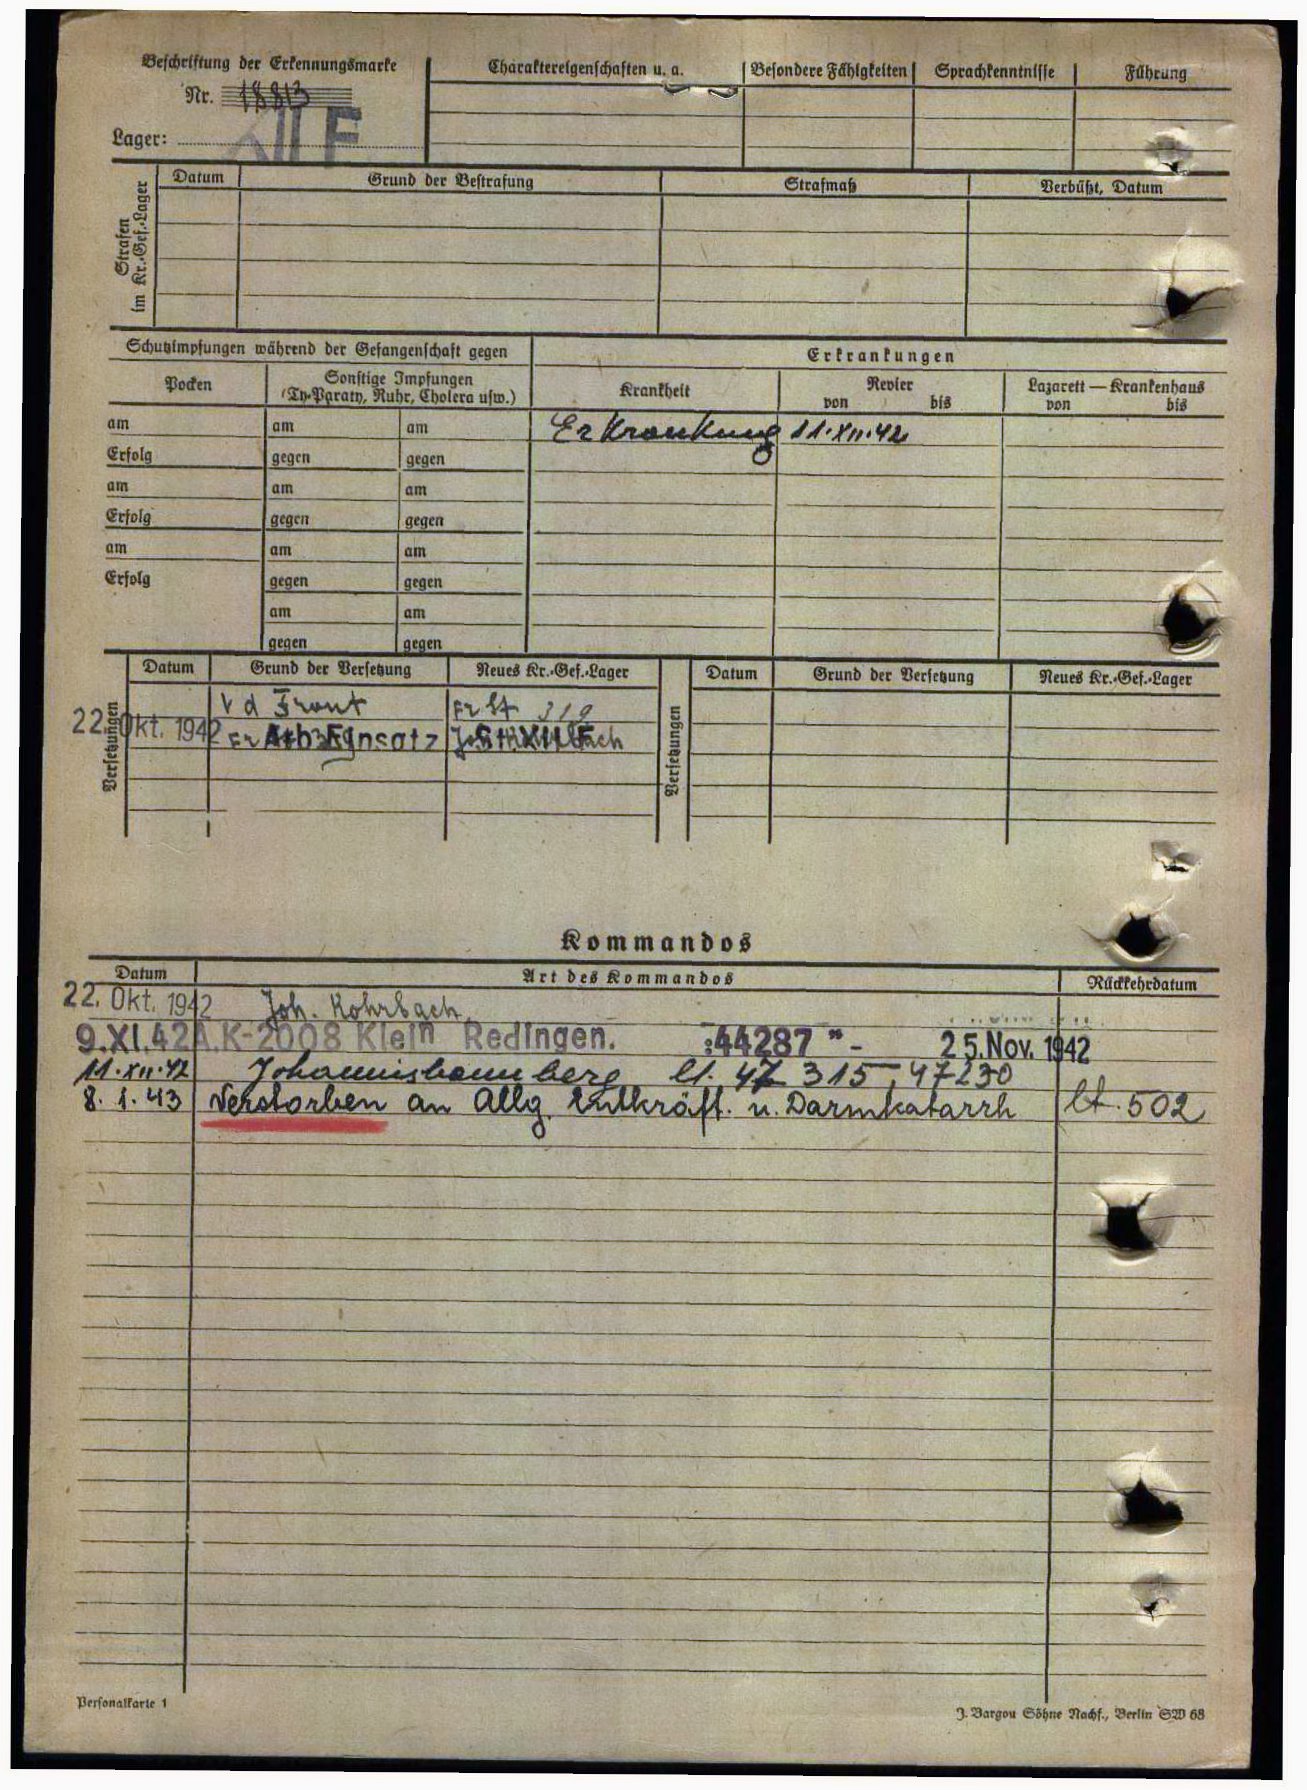 Beschriftung der Erkennungsmarke
Nr. 18813
Lager: XII F
Charaktereigenschaften u. a.
Besondere Fähigkeiten
Sprachkenntnisse
Führung
Strafen im Kr.-Gef.-Lager
Datum
Grund der Bestrafung
Strafmaß
Verbüßt, Datum
Schutzimpfungen während der Gefangenschaft gegen
Erkrankungen
Pocken
Sonstige Impfungen
(Ty-Paraty, Ruhr, Cholera usw.)
Krankheit
Revier
von bis
Lazarett — Krankenhaus
von bis
am am am Erkrankung 11.XII.42
Erfolg gegen gegen
am am am
Erfolg gegen gegen
am am am
Erfolg gegen gegen
am am
gegen gegen
Versetzungen
Datum Grund der Versetzung Neues Kr.-Gef.-Lager
v d Front Fr St 319
22. Okt. 1942 Arb Einsatz St XII F
Versetzungen
Datum Grund der Versetzung Neues Kr.-Gef.-Lager
Kommandos
Datum Art des Kommandos Rückkehrdatum
22. Okt. 1942 Joh. Rohrbach
9.XI.42 A.K-2008 Klein Redingen. :44287 "- 25. Nov. 1942
11.XII.42 Johannisbannberg lt. 47 315, 47230
8.1.43 Verstorben an Allg. Entkräft. u. Darmkatarrh lt. 502
Personalkarte 1
J. Bargou Söhne Nachf., Berlin SW 68